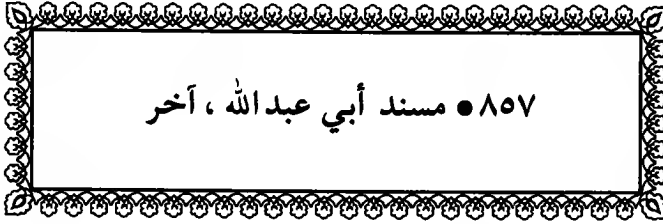 ٨٥٧ • مسند أبي عبدالله ، آخر